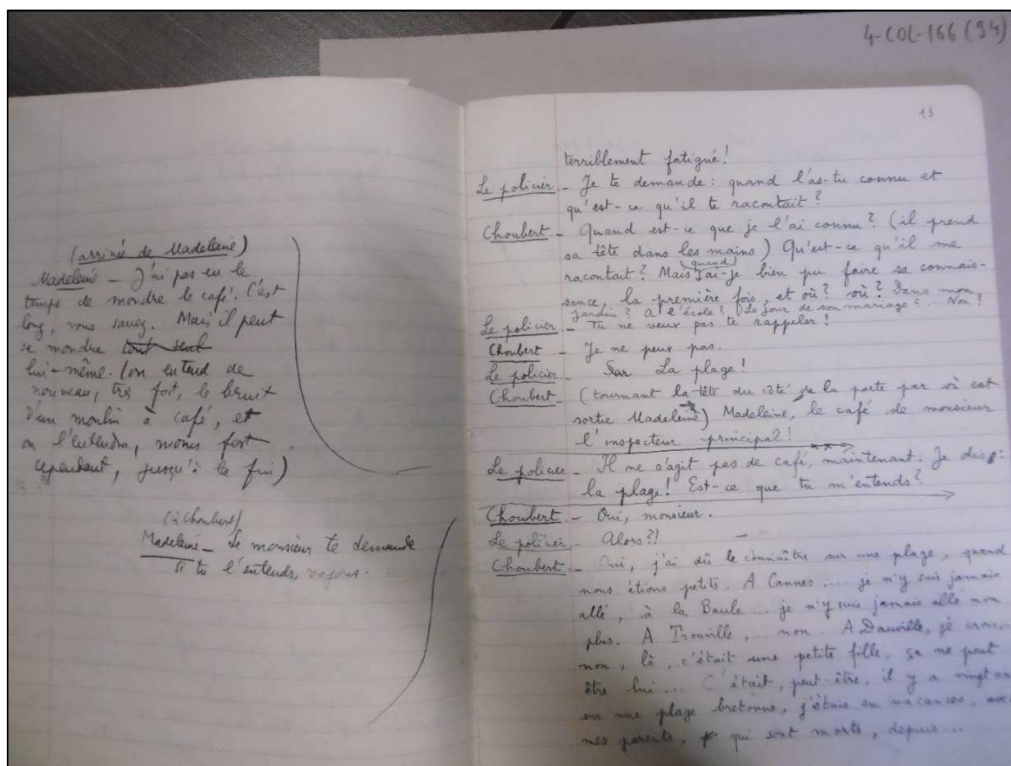 4-COL-166 (94)
(arrivée de Madeleine)
Madeleine – J'ai pas eu le
temps de moudre le café. C'est
long, vous savez. Mais il peut
se moudre tout seul
lui-même. (on entend de
nouveau, très fort, le bruit
d'un moulin à café, et
on l'entendra, moins fort
cependant, jusqu'à la fin)
(à Choubert)
Madeleine – Le monsieur te demande
si tu l'entends, voyons.
13
terriblement fatigué!
Le policier – Je te demande: quand l'as-tu connu et
qu'est-ce qu'il te racontait?
Choubert – Quand est-ce que je l'ai connu? (il prend
sa tête dans les mains) Qu'est-ce qu'il me
racontait? Mais quand ai-je bien pu faire sa connais-
sance, la première fois, et où? où? Dans mon
jardin? A l'école? Le jour de son mariage? ... Non!
Le policier – Tu ne veux pas te rappeler!
Choubert – Je ne peux pas.
Le policier – Sur La plage!
Choubert – (tournant la tête du côté de la porte par où est
sortie Madeleine) Madeleine, le café de monsieur
l'inspecteur principal!
Le policier – Il ne s'agit pas de café, maintenant. Je dis:
la plage! Est-ce que tu m'entends?
Choubert – Oui, monsieur.
Le policier – Alors?!
Choubert – Oui, j'ai dû le connaître sur une plage, quand
nous étions petits. A Cannes ... je n'y suis jamais
allé, à la Baule ... je n'y suis jamais allé non
plus. A Trouville, ... non. A Dauville, je crois,
non, là, c'était une petite fille, ça ne peut
être lui ... C'était, peut-être, il y a vingt ans
sur une plage bretonne, j'étais en vacances, avec
mes parents, qui sont morts, depuis ...